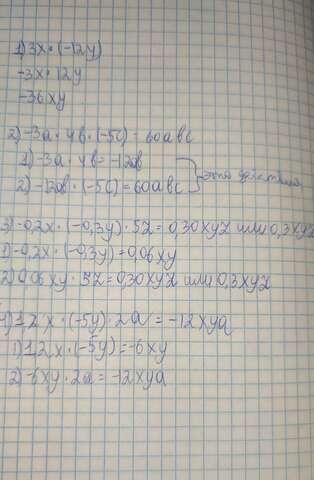 1) 3x · (-12y)
-3x · 12y
-36xy
2) -3a · 4b · (-5c) = 60abc
1) -3a · 4b = -12ab
2) -12ab · (-5c) = 60abc
это действия
3) -0,2x · (-0,3y) · 5z = 0,30xyz или 0,3xyz
1) -0,2x · (-0,3y) = 0,06xy
2) 0,06xy · 5z = 0,30xyz или 0,3xyz
4) 1,2x · (-5y) · 2a = -12xya
1) 1,2x · (-5y) = -6xy
2) -6xy · 2a = -12xya